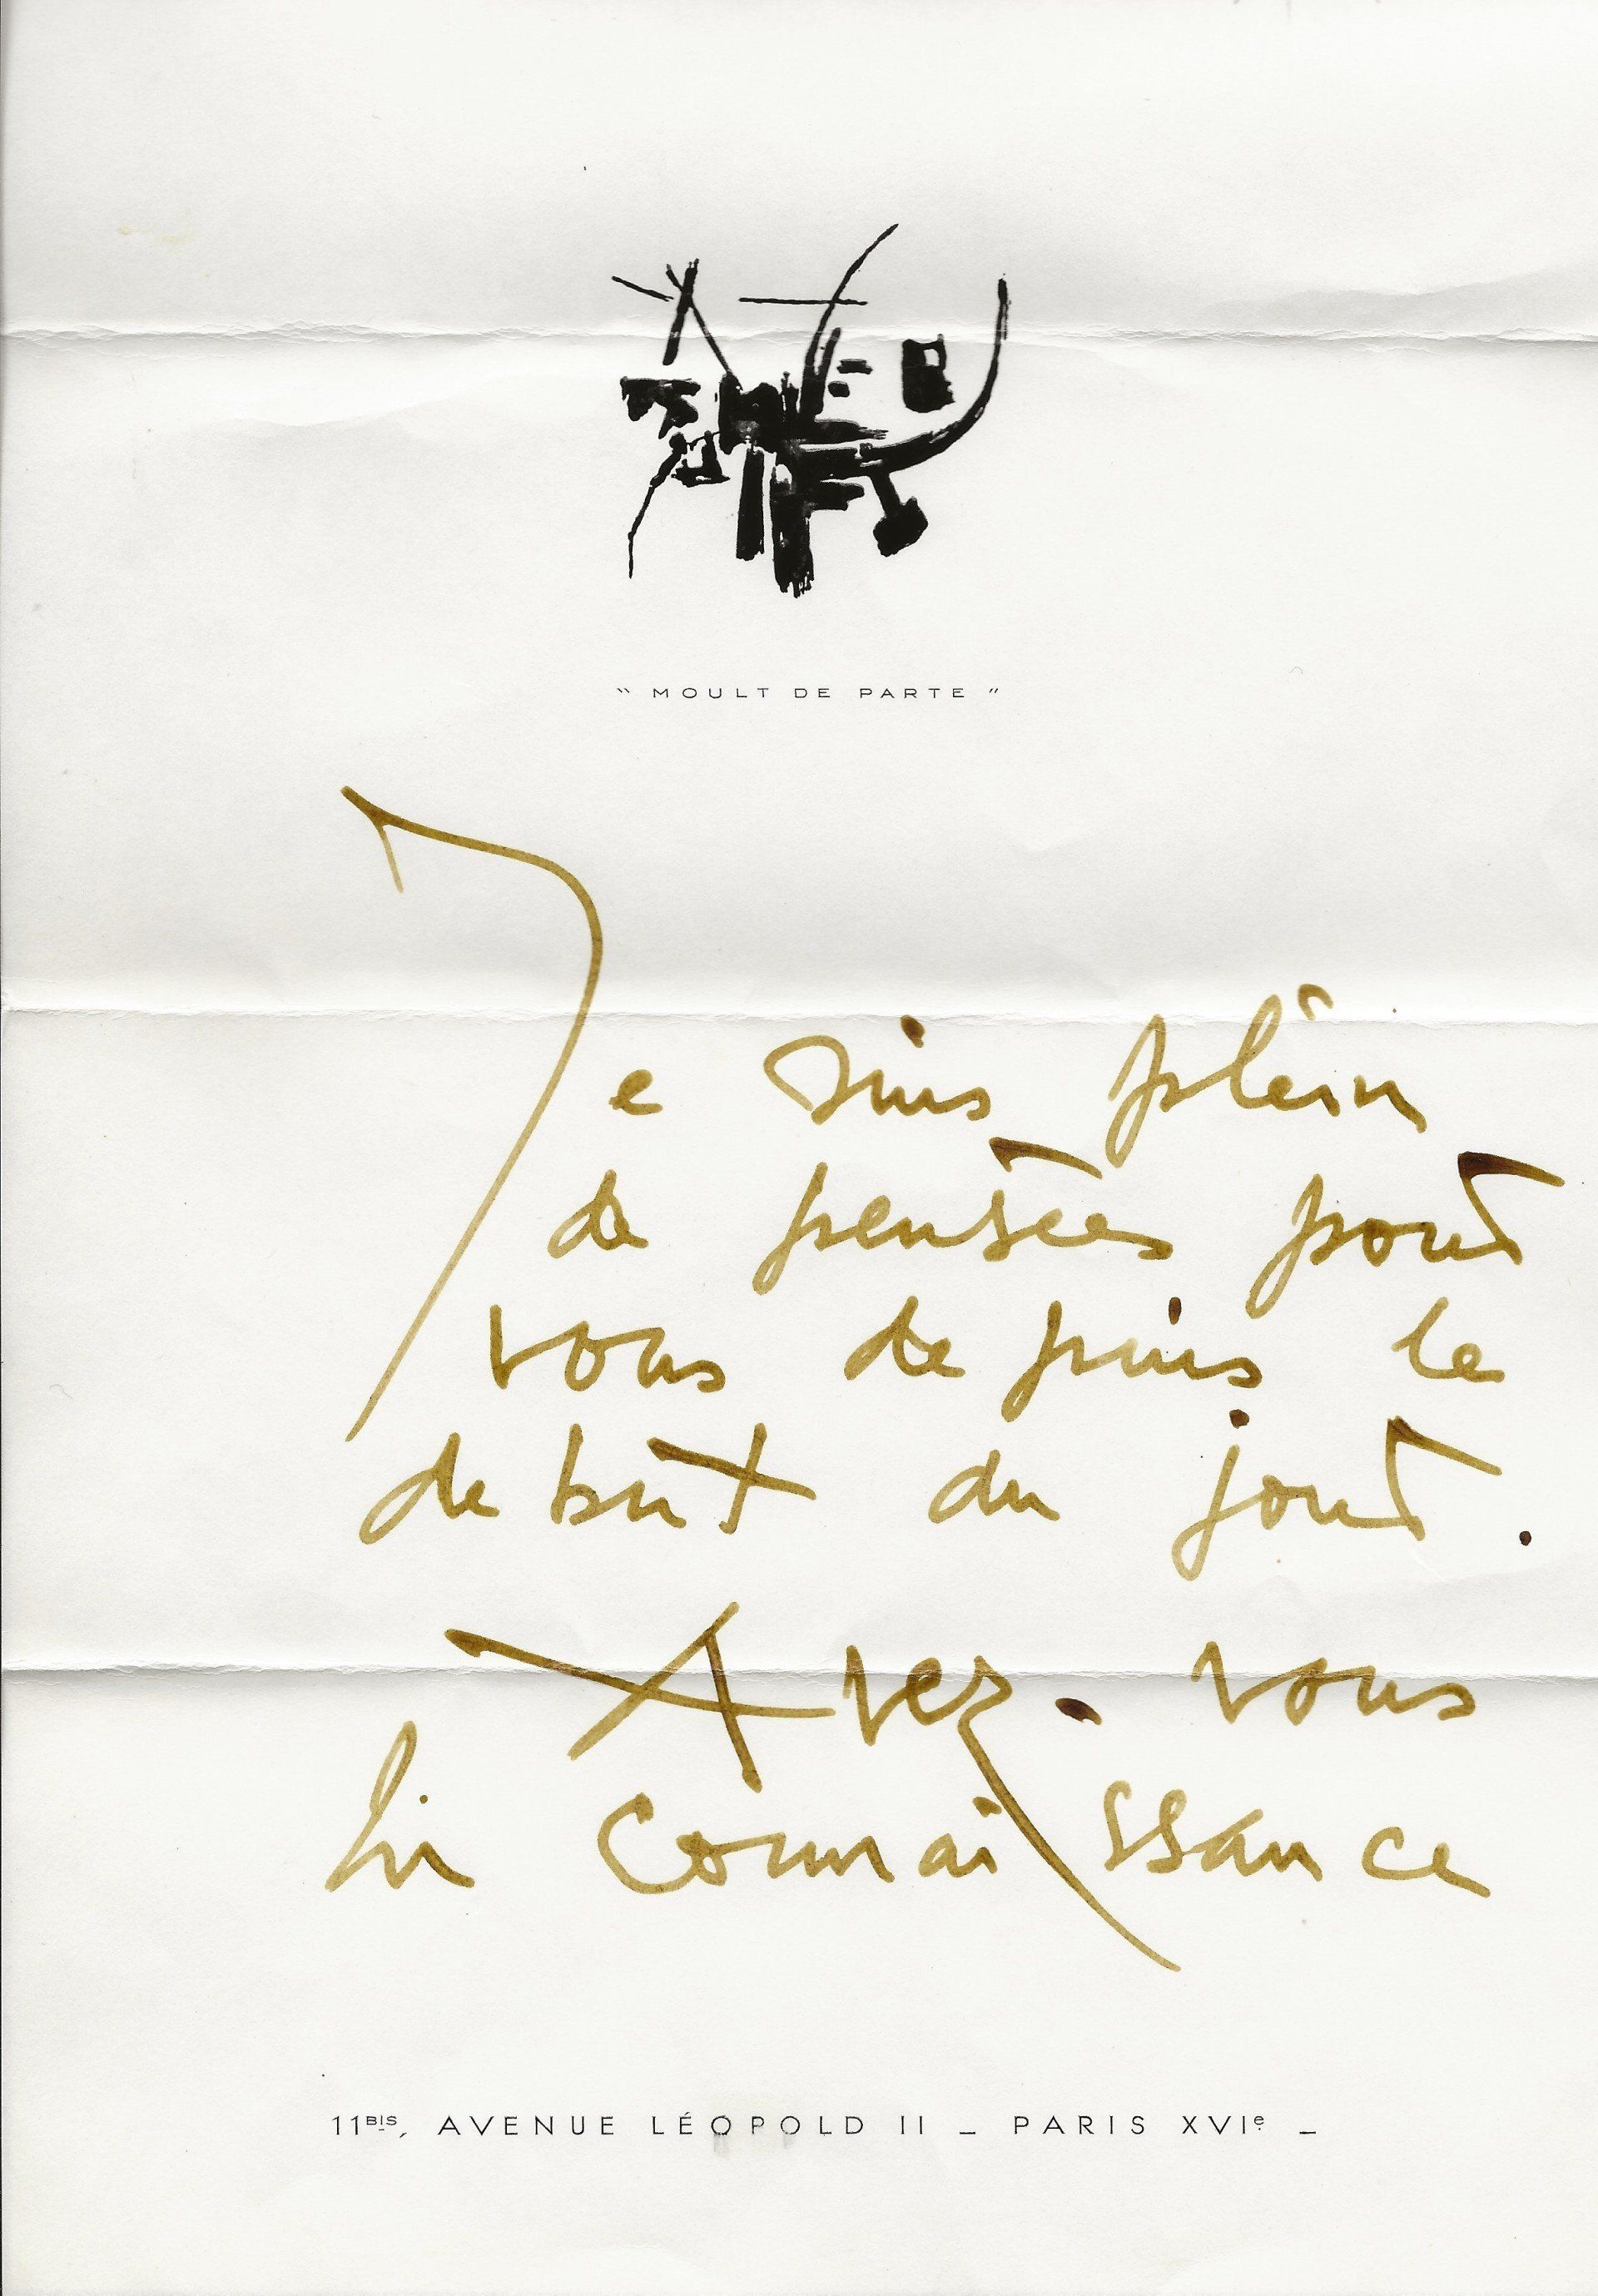 “ MOULT DE PARTE ”
Je suis plein
de pensées pour
vous depuis le
debut du jour.
Avez-vous
connaissance
11BIS, AVENUE LÉOPOLD II _ PARIS XVIe _